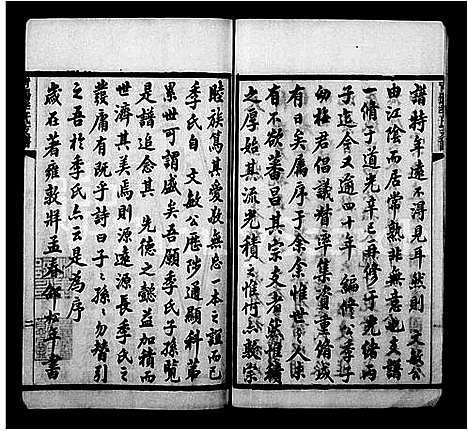 譜特年遠不得見耳然則 文敏公
由江陰而居常熟非無意也支譜
一脩于道光辛巳再修于光緒丙
子迄今又逾四十年 編修公季子
幼梅君倡議贊率集資重脩誠
有日矣屬序于余余惟世之人未
有不欲蕃昌其宗支者然惟積
之厚始其流光積之 敬宗
睦族篤其愛敬無忘一本之誼而已
季氏自 文敏公歷陟通顯科第
累世可謂盛矣吾願季氏子孫覽
譜追念其 先德之懿益加積而
世濟其美焉則源遠流長季氏之
發庸有既乎詩曰子子孫孫勿替引
之吾於季氏云是為序
歲在著雍敦牂孟春邵松年書